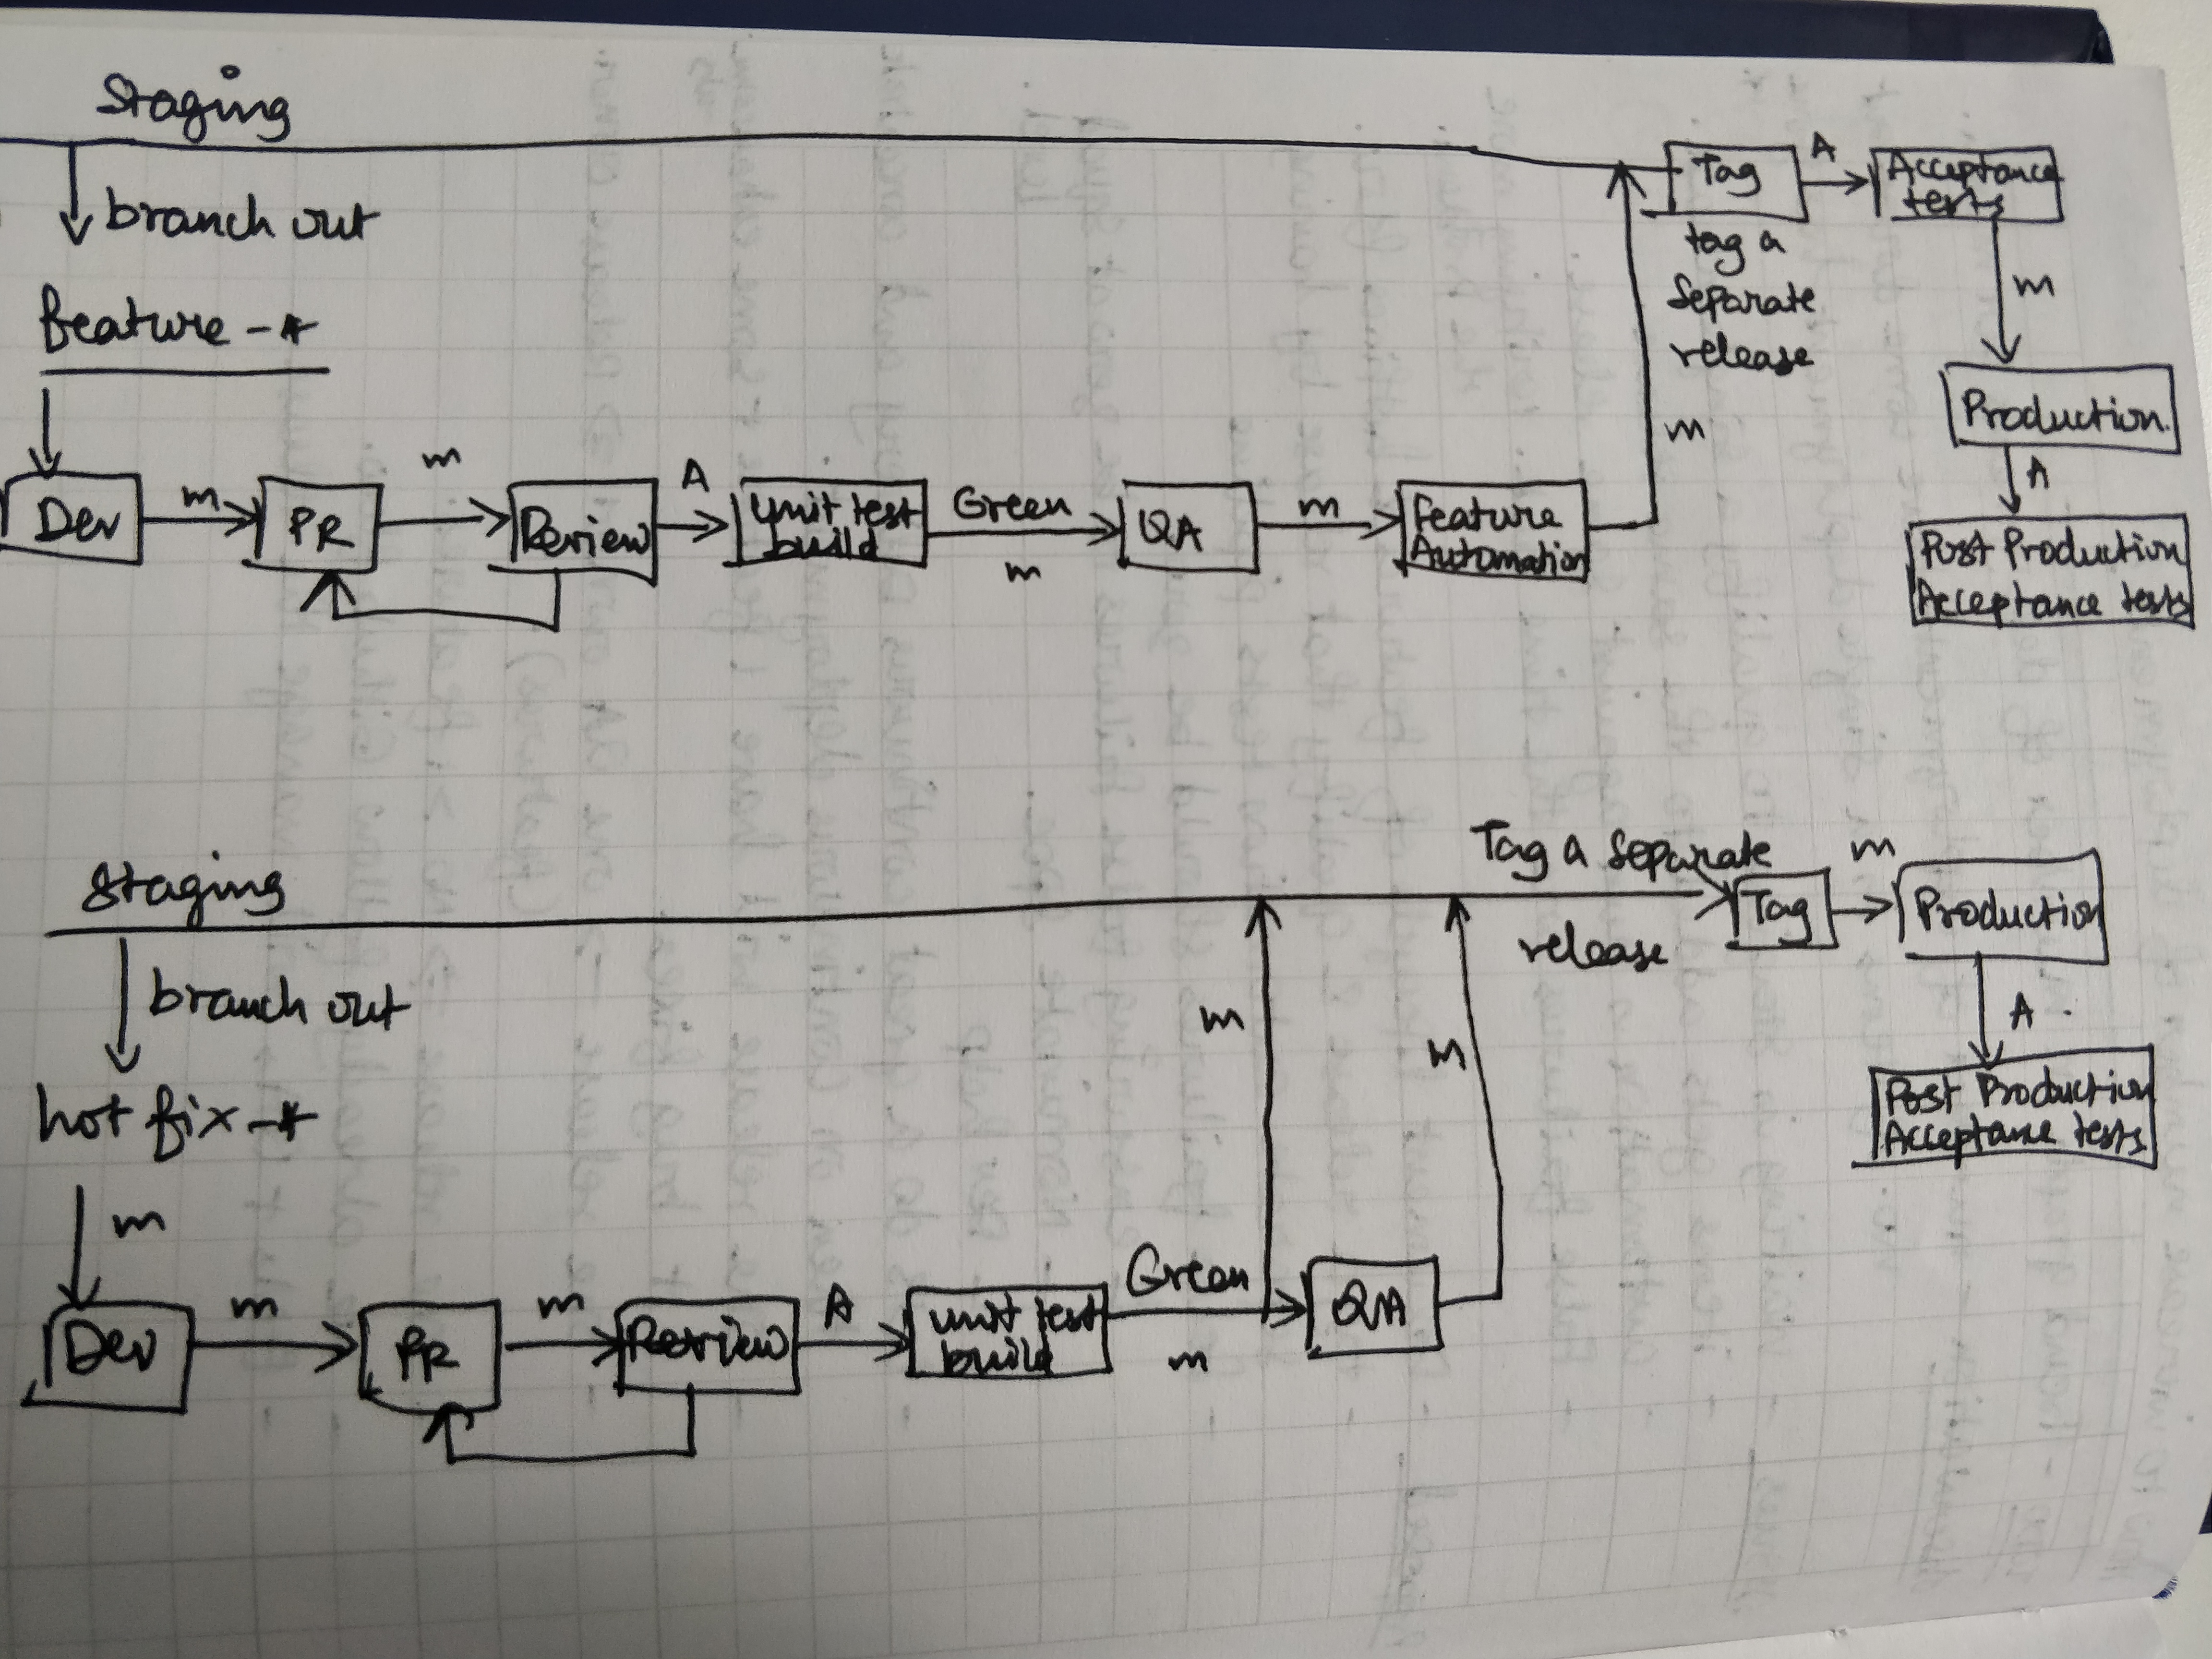 Staging
branch out
feature-*
Dev
m
PR
m
Review
A
unit test
build
Green
m
QA
m
Feature
Automation
m
Tag
tag a
Separate
release
A
Acceptance
tests
m
Production
A
Post Production
Acceptance tests
Staging
branch out
hot fix-*
m
Dev
m
PR
m
Review
A
unit test
build
Green
m
m
QA
m
Tag a separate
release
Tag
m
Production
A
Post Production
Acceptance tests